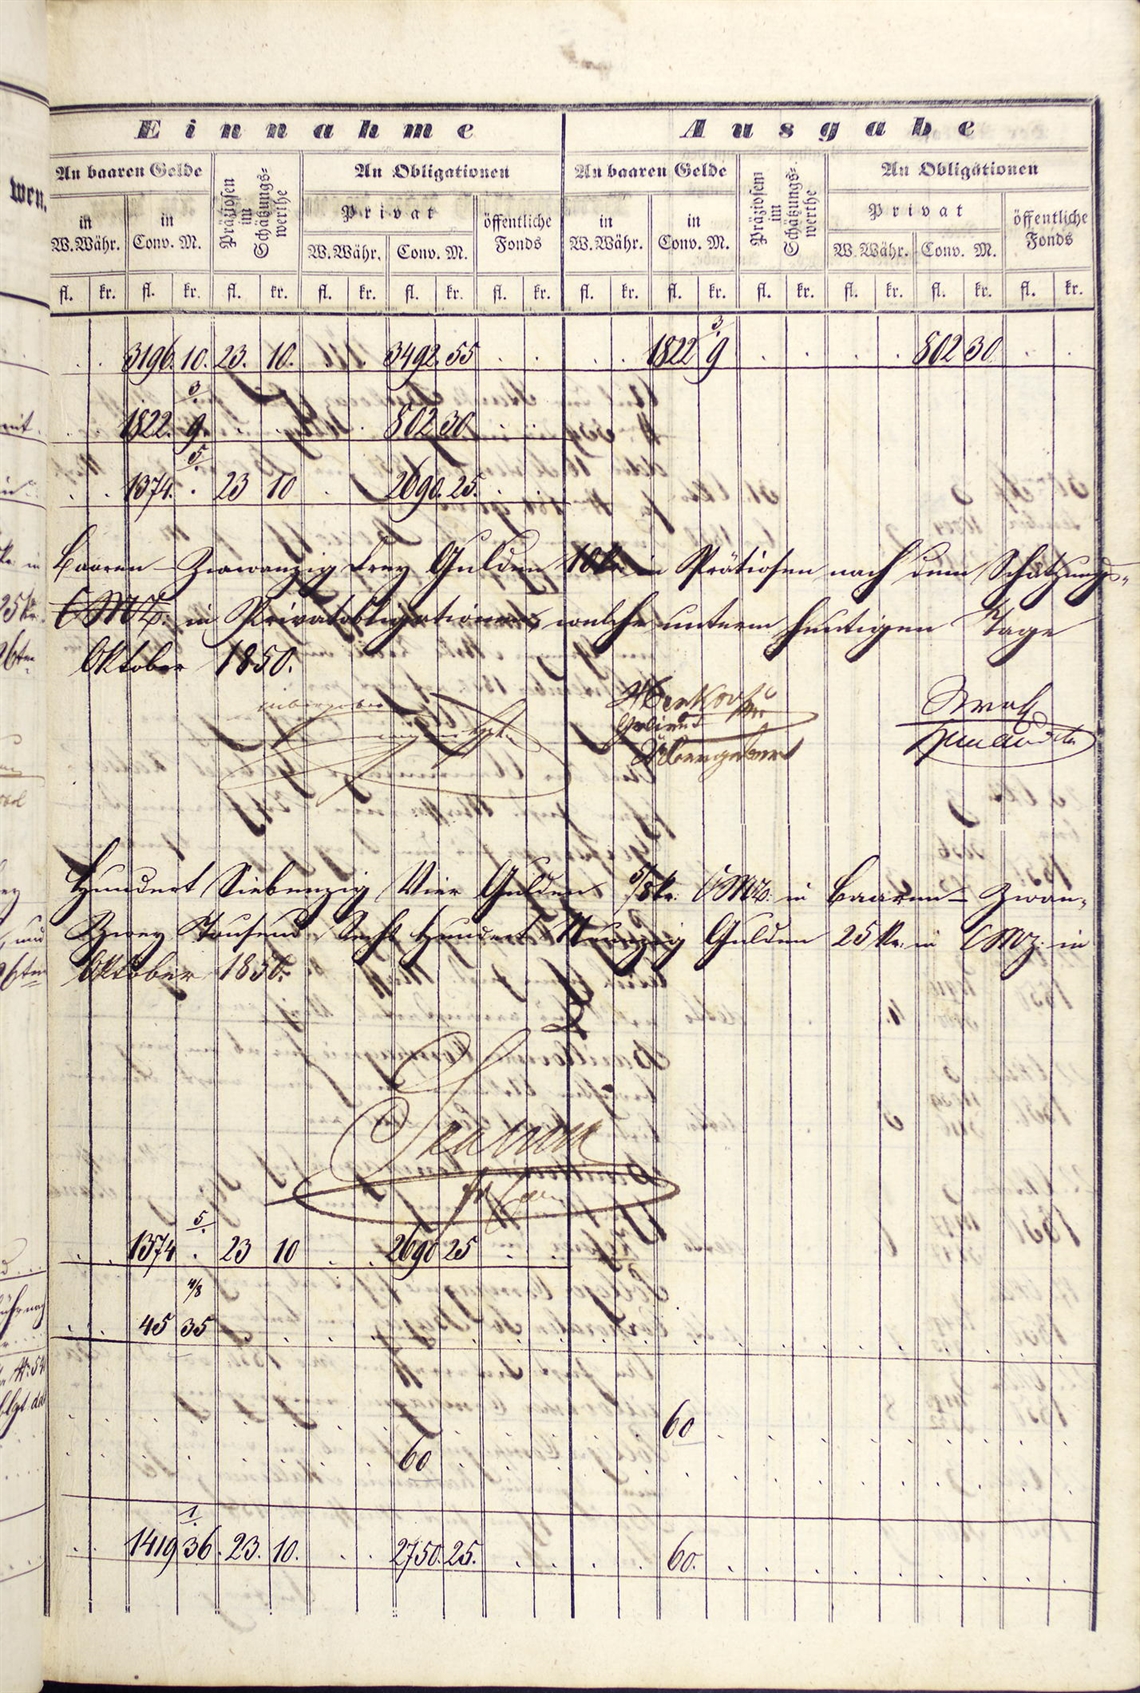 Einnahme Ausgabe
An baaren Gelde Präziosen im Schätzungs-werthe An Obligationen An baaren Gelde Präziosem im Schätzungs-werthe An Obligationen
Privat öffentliche Fonds Privat öffentliche Fonds
in W.Währ. in Conv. M. W.Währ. Conv. M. in W.Währ. in Conv. M. W.Währ. Conv. M.
fl. kr. fl. kr. fl. kr. fl. kr. fl. kr. fl. kr. fl. kr. fl. kr. fl. kr. fl. kr. fl. kr. fl. kr.
3196. 10. 23. 10. 3492. 55 1822 9 3 802 30.
3
1822. 9. 802 30
5
1374. . 23 10 2690. 25.
Baaren – Zwanzig drey Gulden 10 kr in Prätiosen nach dem Schätzungs-
CMz. in Privatobligationen, welche unterm heutigen Tage
Oktober 1850.
Übergeber
Hundert Siebenzig Vier Gulden 5/8 kr. CMz. in Baaren – Zwan-
Zwey Tausend Sechs Hundert Neunzig Gulden 25 kr. in CMz. in
Oktober 1850.
5
1374 . 23 10 2690 25
4/8
45 35
60
60
1
1419 36. 23. 10. 2750. 25. 60.